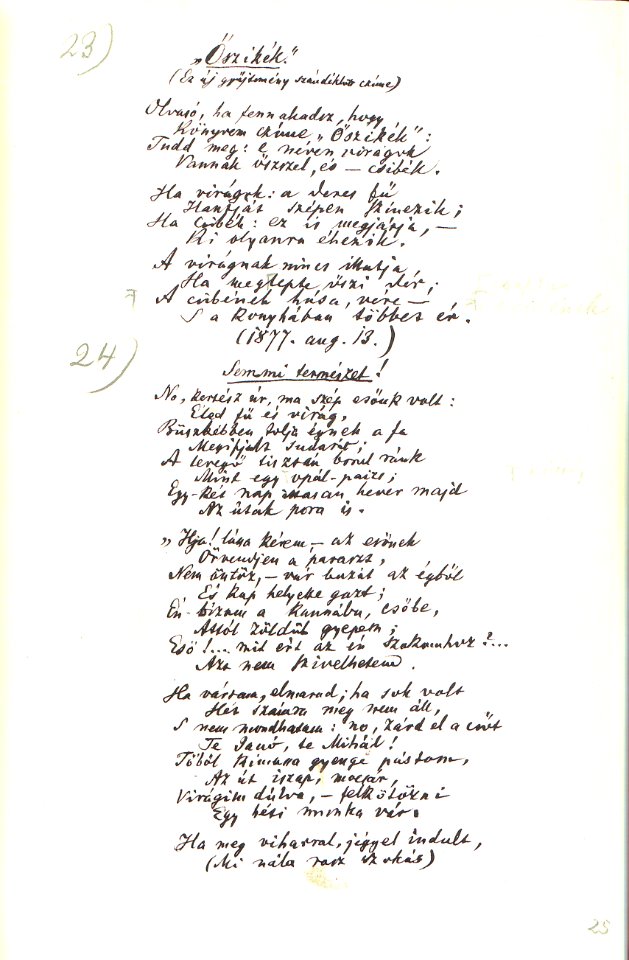 23)
„Őszikék."
(Ez új gyüjtemény szándéklott czíme)
Olvasó, ha fennakadsz, hogy
Könyvem czíme „Őszikék":
Tudd meg: e néven virágok
Vannak őszszel, és — csibék.
Ha virágok: a deres fű
Hantját szépen színezik;
Ha csibék: ez is megjárja, —
Ki olyanra éhezik.
A virágnak nincs illatja,
Ha megtepte őszi dér;
A csibének húsa, vere —
S a konyhában többet ér.
(1877. aug. 13.)
24)
Semmi természet!
No, kertész úr, ma szép esőnk volt:
Éled fű és virág,
Büszkébben tolja égnek a fa
Megifjult sudarát;
A levegő tisztán borul ránk
Mint egy opál-paizs;
Egy-két nap masan hever majd
Az útak pora is.
„Hja! lássa kérem — az esőnek
Örvendjen a paraszt,
Nem öntöz, — vár buzát az égből
És kap helyette gazt;
Én bízom a kannába, csőbe,
Attól zöldűl gyepem;
Eső!... mit ért az én szakomhoz?...
Azt nem szívelhetem.
Ha várom, elmarad; ha sok volt
Hét számra meg nem áll,
S nem mondhatom: no, zárd el a csőt
Te Janó, te Mihál!
Tőből kimossa gyenge pástom,
Az út iszap, mocsár,
Virágim dúlva, — felkötözni
Egy heti munka vár.
Ha meg viharral, jéggel indult,
(Mi nála rosz szokás)
25